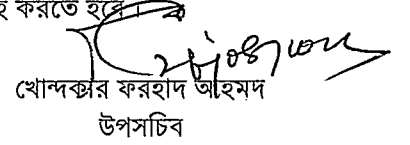 হ করতে হবে।
খোন্দকার ফরহাদ আহমদ
উপসচিব